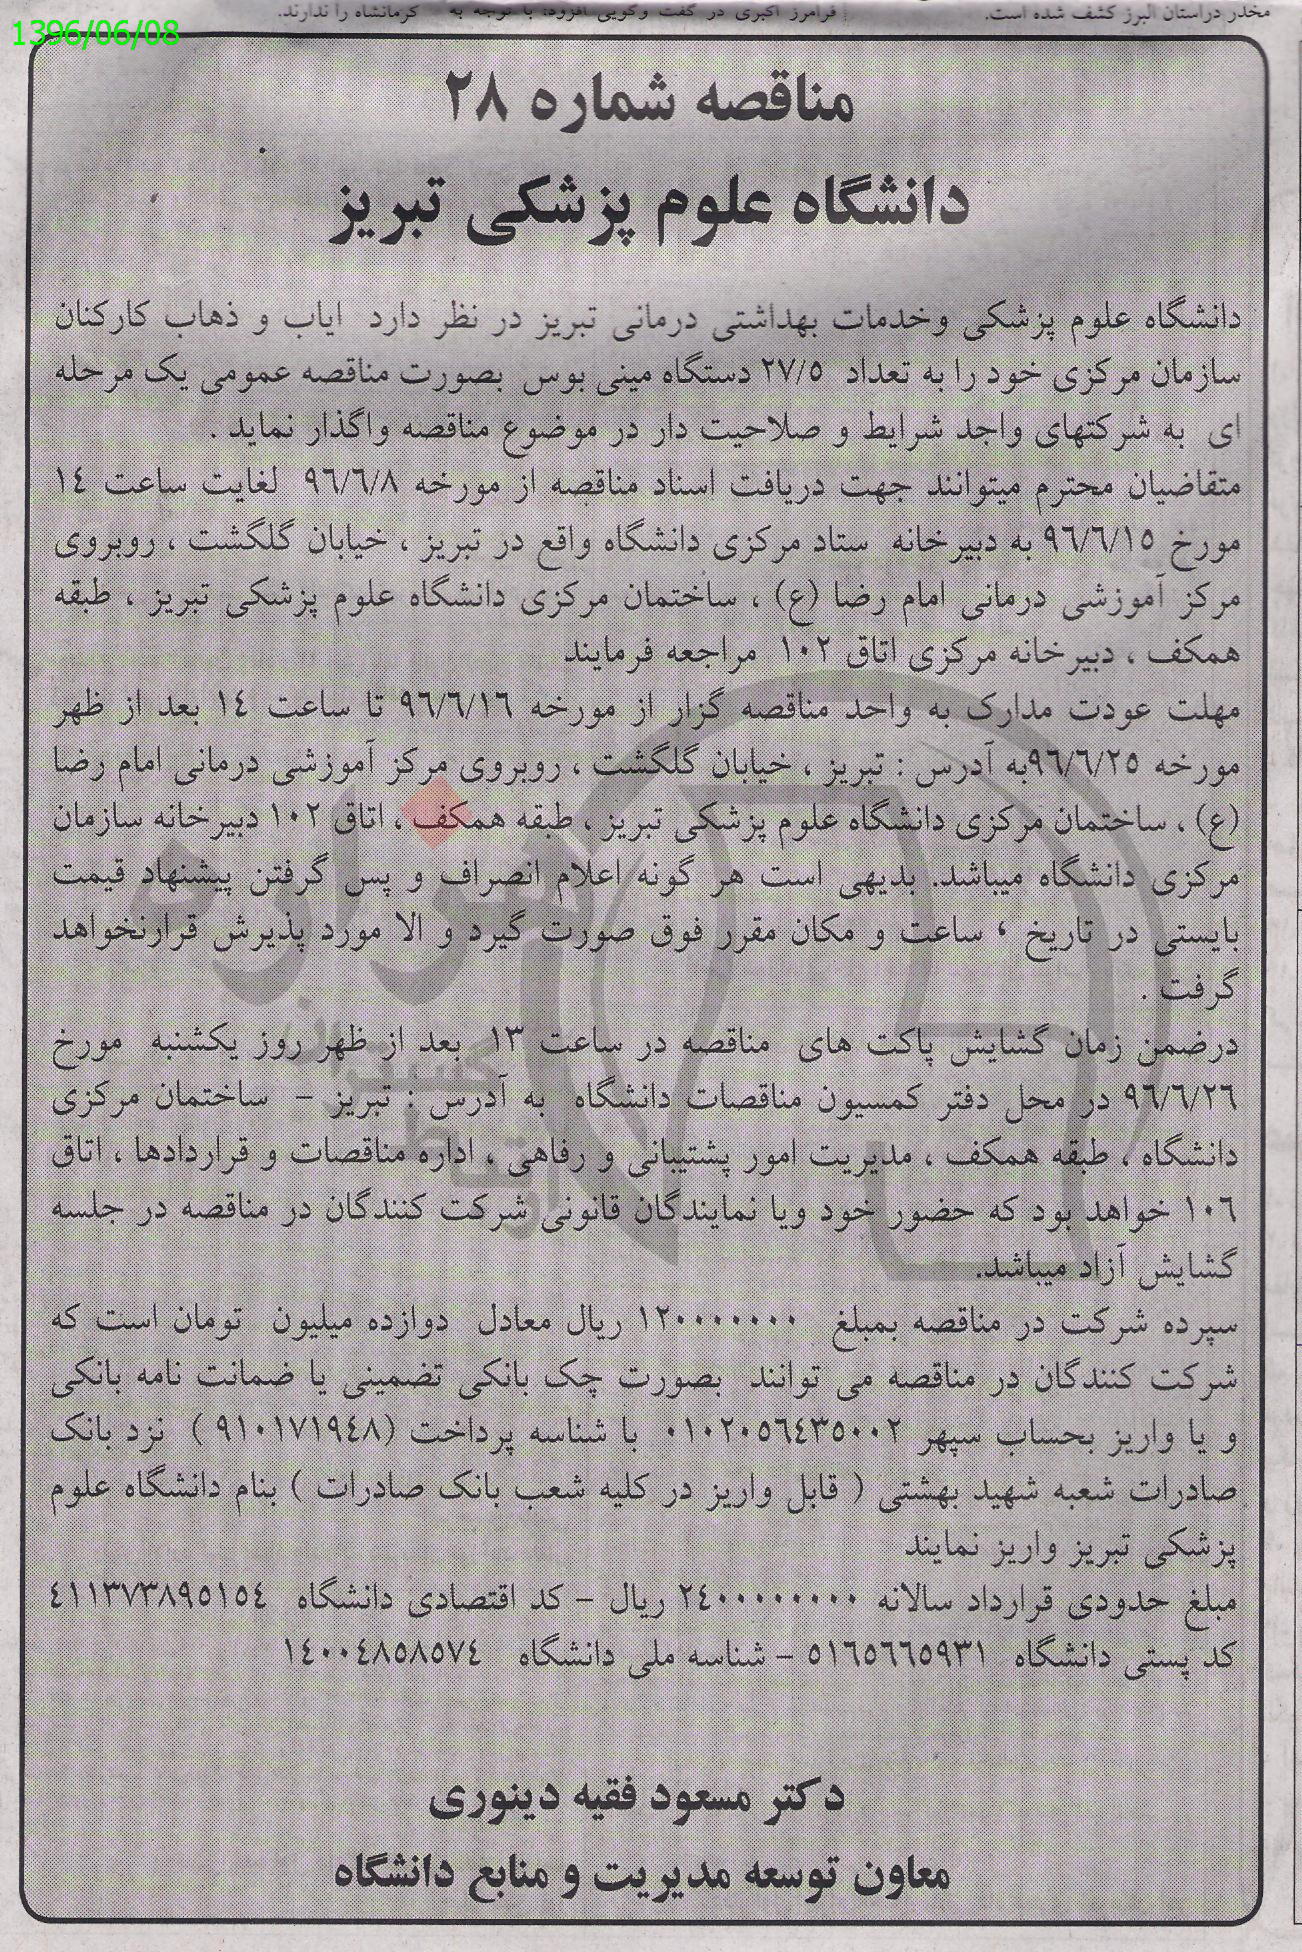 مخدر دراستان البرز کشف شده است.
فرامرز اکبری در گفت وگویی افزود: با توجه به
کرمانشاه را ندارند.
1396/06/08
مناقصه شماره ۲۸
دانشگاه علوم پزشکی تبریز
دانشگاه علوم پزشکی وخدمات بهداشتی درمانی تبریز در نظر دارد ایاب و ذهاب کارکنان
سازمان مرکزی خود را به تعداد ۲۷/۵ دستگاه مینی بوس بصورت مناقصه عمومی یک مرحله
ای به شرکتهای واجد شرایط و صلاحیت دار در موضوع مناقصه واگذار نماید .
متقاضیان محترم میتوانند جهت دریافت اسناد مناقصه از مورخه ۹٦/٦/۸ لغایت ساعت ١٤
مورخ ۹٦/٦/۱٥ به دبیرخانه ستاد مرکزی دانشگاه واقع در تبریز ، خیابان گلگشت ، روبروی
مرکز آموزشی درمانی امام رضا (ع) ، ساختمان مرکزی دانشگاه علوم پزشکی تبریز ، طبقه
همکف ، دبیرخانه مرکزی اتاق ۱۰۲ مراجعه فرمایند
مهلت عودت مدارک به واحد مناقصه گزار از مورخه ۹٦/٦/۱٦ تا ساعت ١٤ بعد از ظهر
مورخه ۹٦/٦/۲٥به آدرس : تبریز ، خیابان گلگشت ، روبروی مرکز آموزشی درمانی امام رضا
(ع) ، ساختمان مرکزی دانشگاه علوم پزشکی تبریز ، طبقه همکف ، اتاق ۱۰۲ دبیرخانه سازمان
مرکزی دانشگاه میباشد. بدیهی است هر گونه اعلام انصراف و پس گرفتن پیشنهاد قیمت
بایستی در تاریخ ، ساعت و مکان مقرر فوق صورت گیرد و الا مورد پذیرش قرارنخواهد
گرفت .
درضمن زمان گشایش پاکت های مناقصه در ساعت ۱۳ بعد از ظهر روز یکشنبه مورخ
۹٦/٦/۲٦ در محل دفتر کمسیون مناقصات دانشگاه به آدرس : تبریز – ساختمان مرکزی
دانشگاه ، طبقه همکف ، مدیریت امور پشتیبانی و رفاهی ، اداره مناقصات و قراردادها ، اتاق
۱۰٦ خواهد بود که حضور خود ویا نمایندگان قانونی شرکت کنندگان در مناقصه در جلسه
گشایش آزاد میباشد.
سپرده شرکت در مناقصه بمبلغ ۱۲۰۰۰۰۰۰۰ ریال معادل دوازده میلیون تومان است که
شرکت کنندگان در مناقصه می توانند بصورت چک بانکی تضمینی یا ضمانت نامه بانکی
و یا واریز بحساب سپهر ۰۱۰۲۰٥٦٤۳٥۰۰۲ با شناسه پرداخت (۹۱۰۱۷۱۹٤۸ ) نزد بانک
صادرات شعبه شهید بهشتی ( قابل واریز در کلیه شعب بانک صادرات ) بنام دانشگاه علوم
پزشکی تبریز واریز نمایند
مبلغ حدودی قرارداد سالانه ۲٤۰۰۰۰۰۰۰۰ ریال – کد اقتصادی دانشگاه ٤۱۱۳۷۳۸۹٥۱٥٤
کد پستی دانشگاه ٥۱٦٥٦٦٥۹۳۱ – شناسه ملی دانشگاه ۱٤۰۰٤۸٥۸٥۷٤
دکتر مسعود فقیه دینوری
معاون توسعه مدیریت و منابع دانشگاه